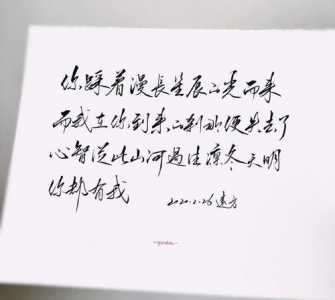 你踩着漫長星辰的光而来
而我在你到来的刹那便失去了
心智從此山河過往凛冬天明
你都有我
2020.2.26 遠方